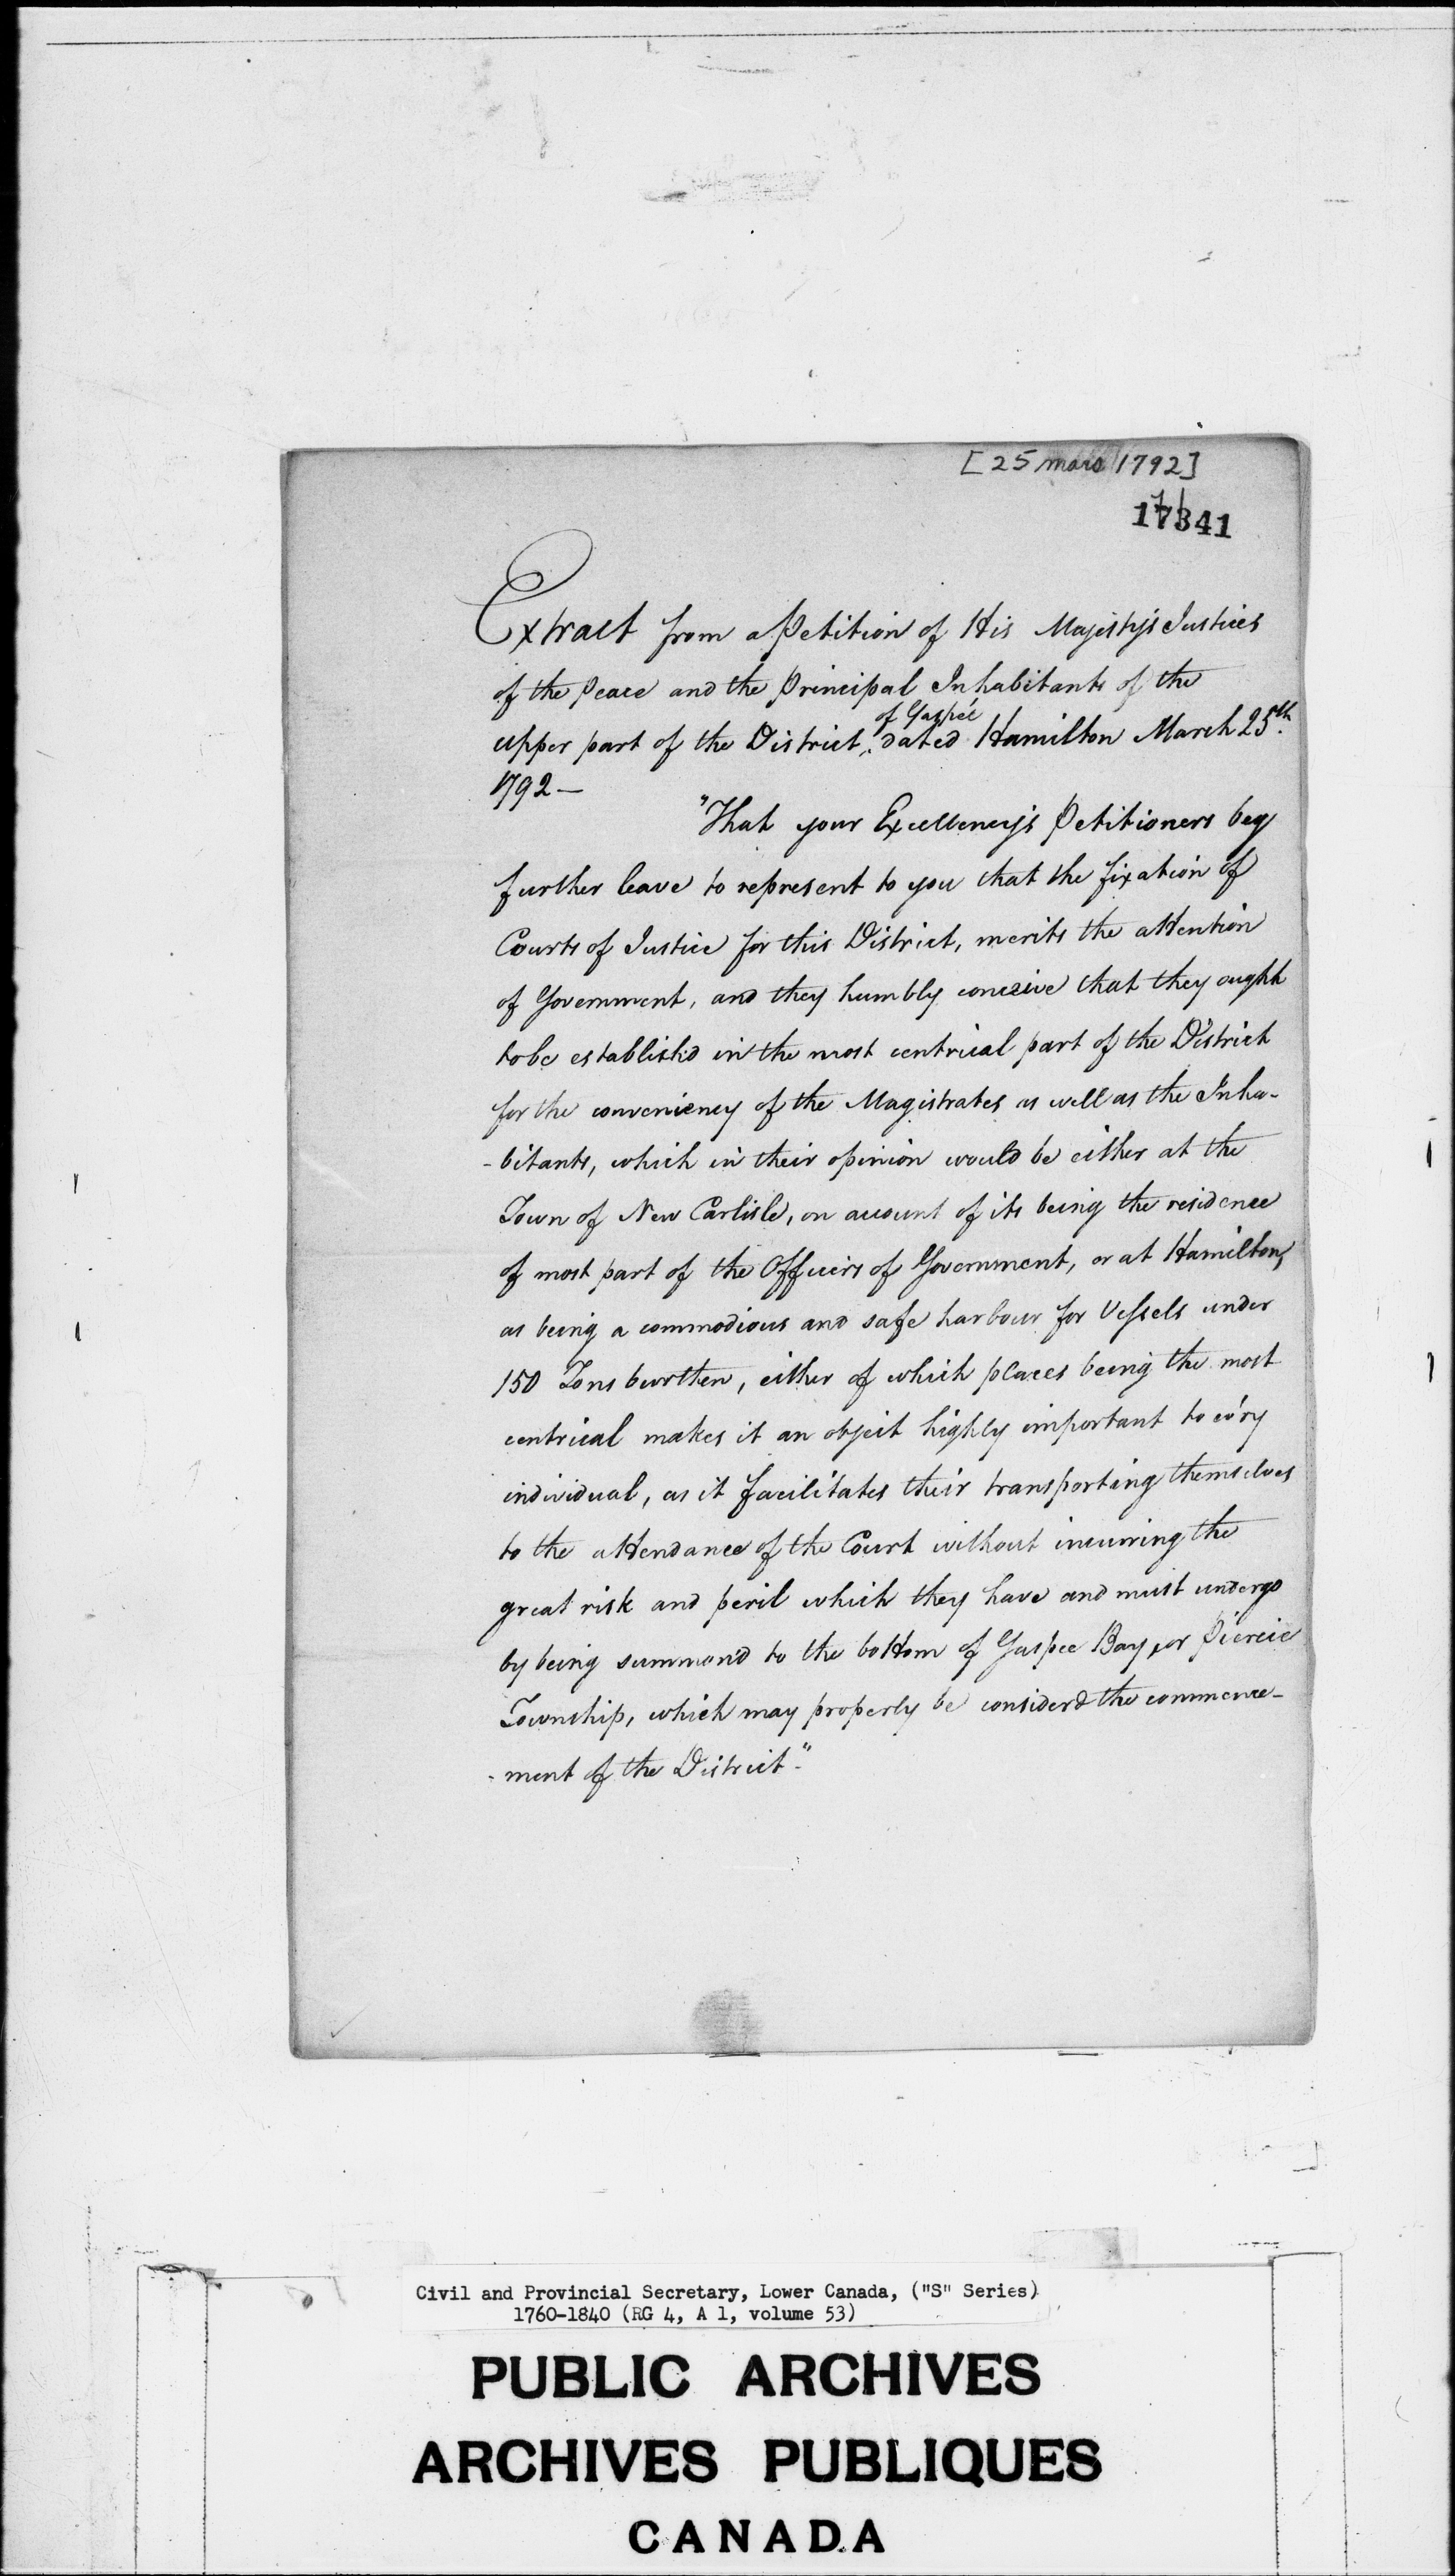 [25 mars 1792]
17341
Extract from a Petition of His Majesty's Justices
of the Peace and the Principal Inhabitants of the
upper part of the District, of Gaspée dated Hamilton March 25th.
1792 —
"That your Excellency's Petitioners beg
further leave to represent to you that the fixation of
Courts of Justice for this District, merits the attention
of Government, and they humbly conceive that they ought
to be establish'd in the most centrical part of the District
for the conveniency of the Magistrates as well as the Inha-
-bitants, which in their opinion would be either at the
Town of New Carlisle, on account of its being the residence
of most part of the Officers of Government, or at Hamilton,
as being a commodious and safe harbour for Vessels under
150 Tons burthen, either of which places being the most
centrical makes it an object highly important to ev'ry
individual, as it facilitates their transporting themselves
to the attendance of the Court without incurring the
great risk and peril which they have and must undergo
by being summon'd to the bottom of Gaspee Bay, or Piercie
Township, which may properly be consider'd the commence-
-ment of the District."
Civil and Provincial Secretary, Lower Canada, ("S" Series)
1760-1840 (RG 4, A 1, volume 53)
PUBLIC ARCHIVES
ARCHIVES PUBLIQUES
CANADA